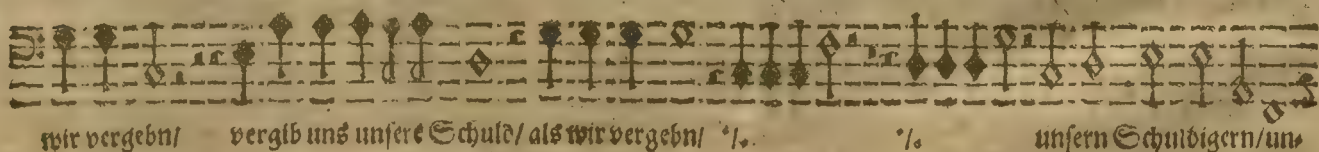 wir vergebn/ vergib uns unsere Schuld/ als wir vergebn/ ·/. ·/. unsern Schuldigern/ un-